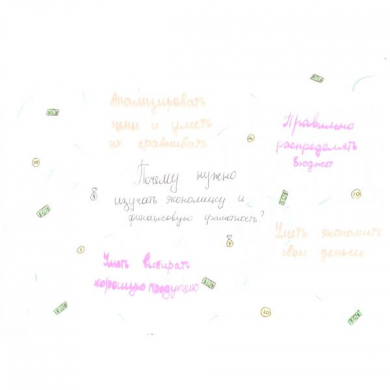 Анализировать
цены и уметь
их сравнивать
Правильно
распределять
бюджет
Почему нужно
изучать экономику и
финансовую грамотность?
Уметь экономить
свои деньги
Уметь выбирать
хорошую продукцию